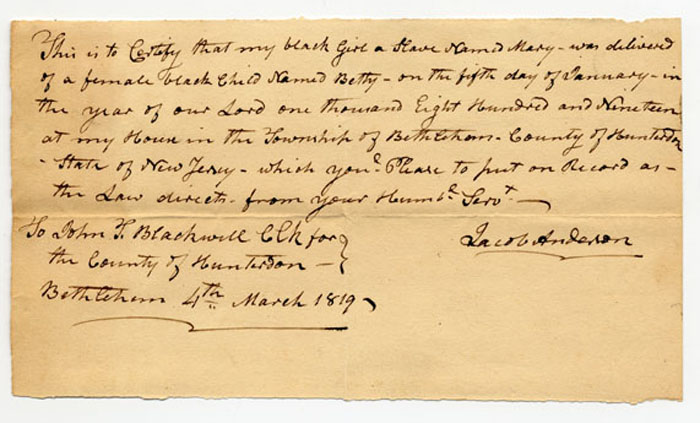 This is to Certify that my black Girl a Slave Named Mary - was delivered
of a female black Child Named Betty - on the fifth day of January - in
the year of our Lord one thousand Eight Hundred and Nineteen
at my House in the Township of Bethlehem - County of Hunterdon
- State of New Jersy - which you'l Please to put on Record as -
the Law directs - from your Humbe. Servt. -
To John T. Blackwell Clk for
the County of Hunterdon -
Jacob Anderson
Bethlehem 4th March 1819